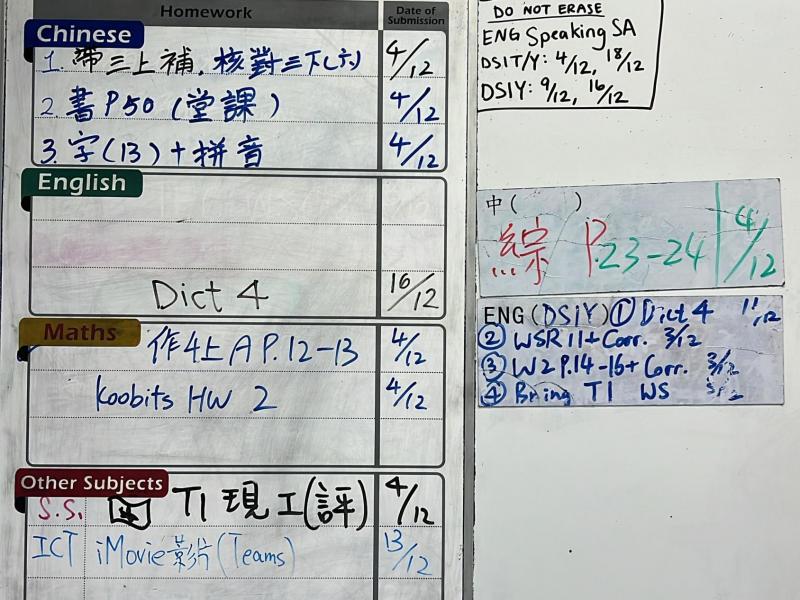 Homework Date of Submission
Chinese
1. 帶三上補, 核對三下(六) 4/12
2. 書 P50 (堂課) 4/12
3. 字(13) + 拼音 4/12
English
Dict 4 16/12
Maths
作4上A P.12-13 4/12
Koobits HW 2 4/12
Other Subjects
S.S. T1 現工(評) 4/12
ICT iMovie影片(Teams) 13/12
DO NOT ERASE
ENG Speaking SA
DSIT/Y: 4/12, 18/12
DSIY: 9/12, 16/12
中( )
綜 P.23-24 4/12
ENG (DSIY) ① Dict 4 11/12
② WSR 11 + Corr. 3/12
③ W2 P.14-16 + Corr. 3/12
④ Bring T1 WS